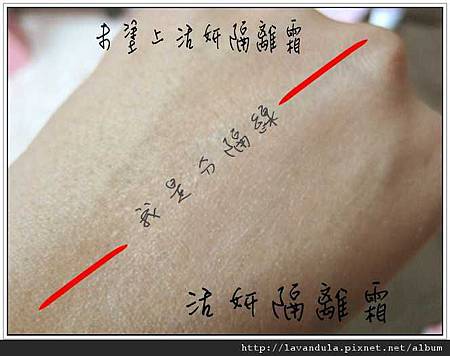 未塗上洁妍隔離霜
我是分隔線
洁妍隔離霜
http://lavandula.pixnet.net/album